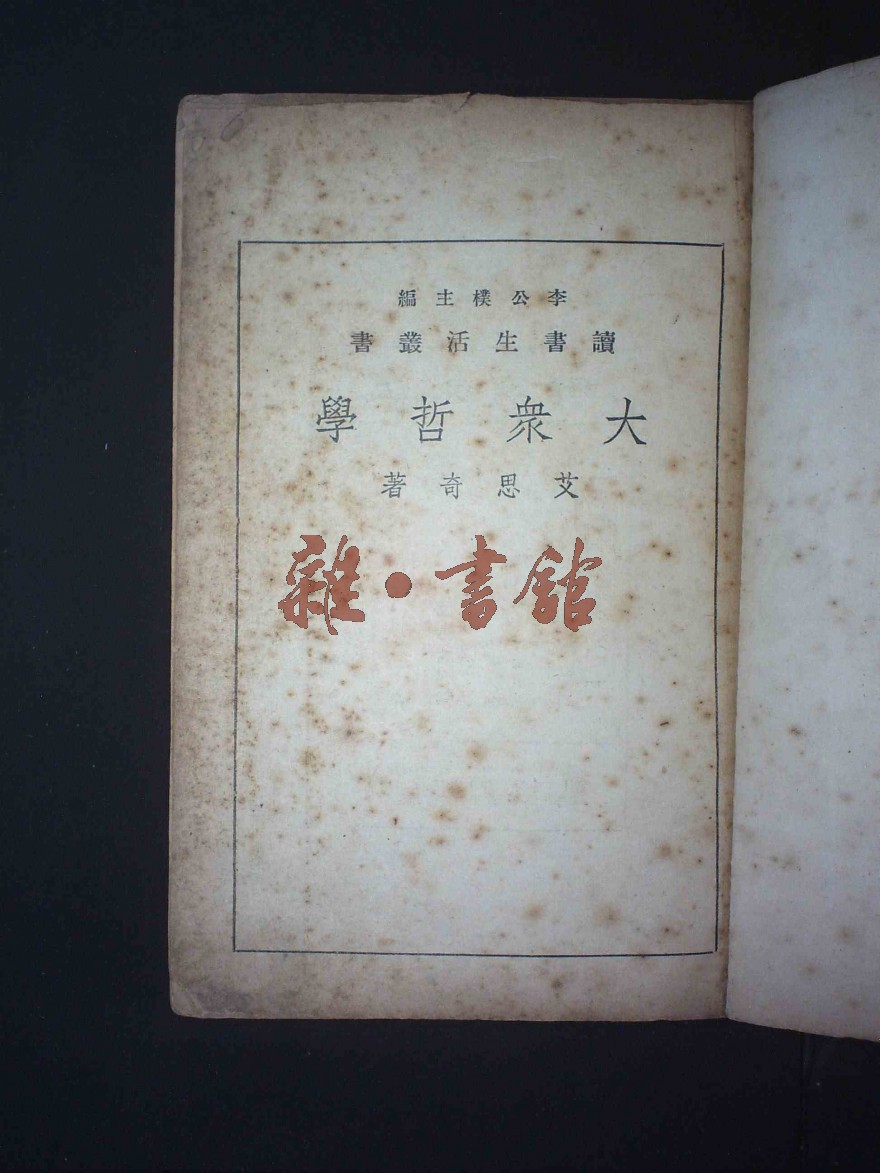 李公樸主編
讀書生活叢書
大衆哲學
艾思奇著
雜·書館